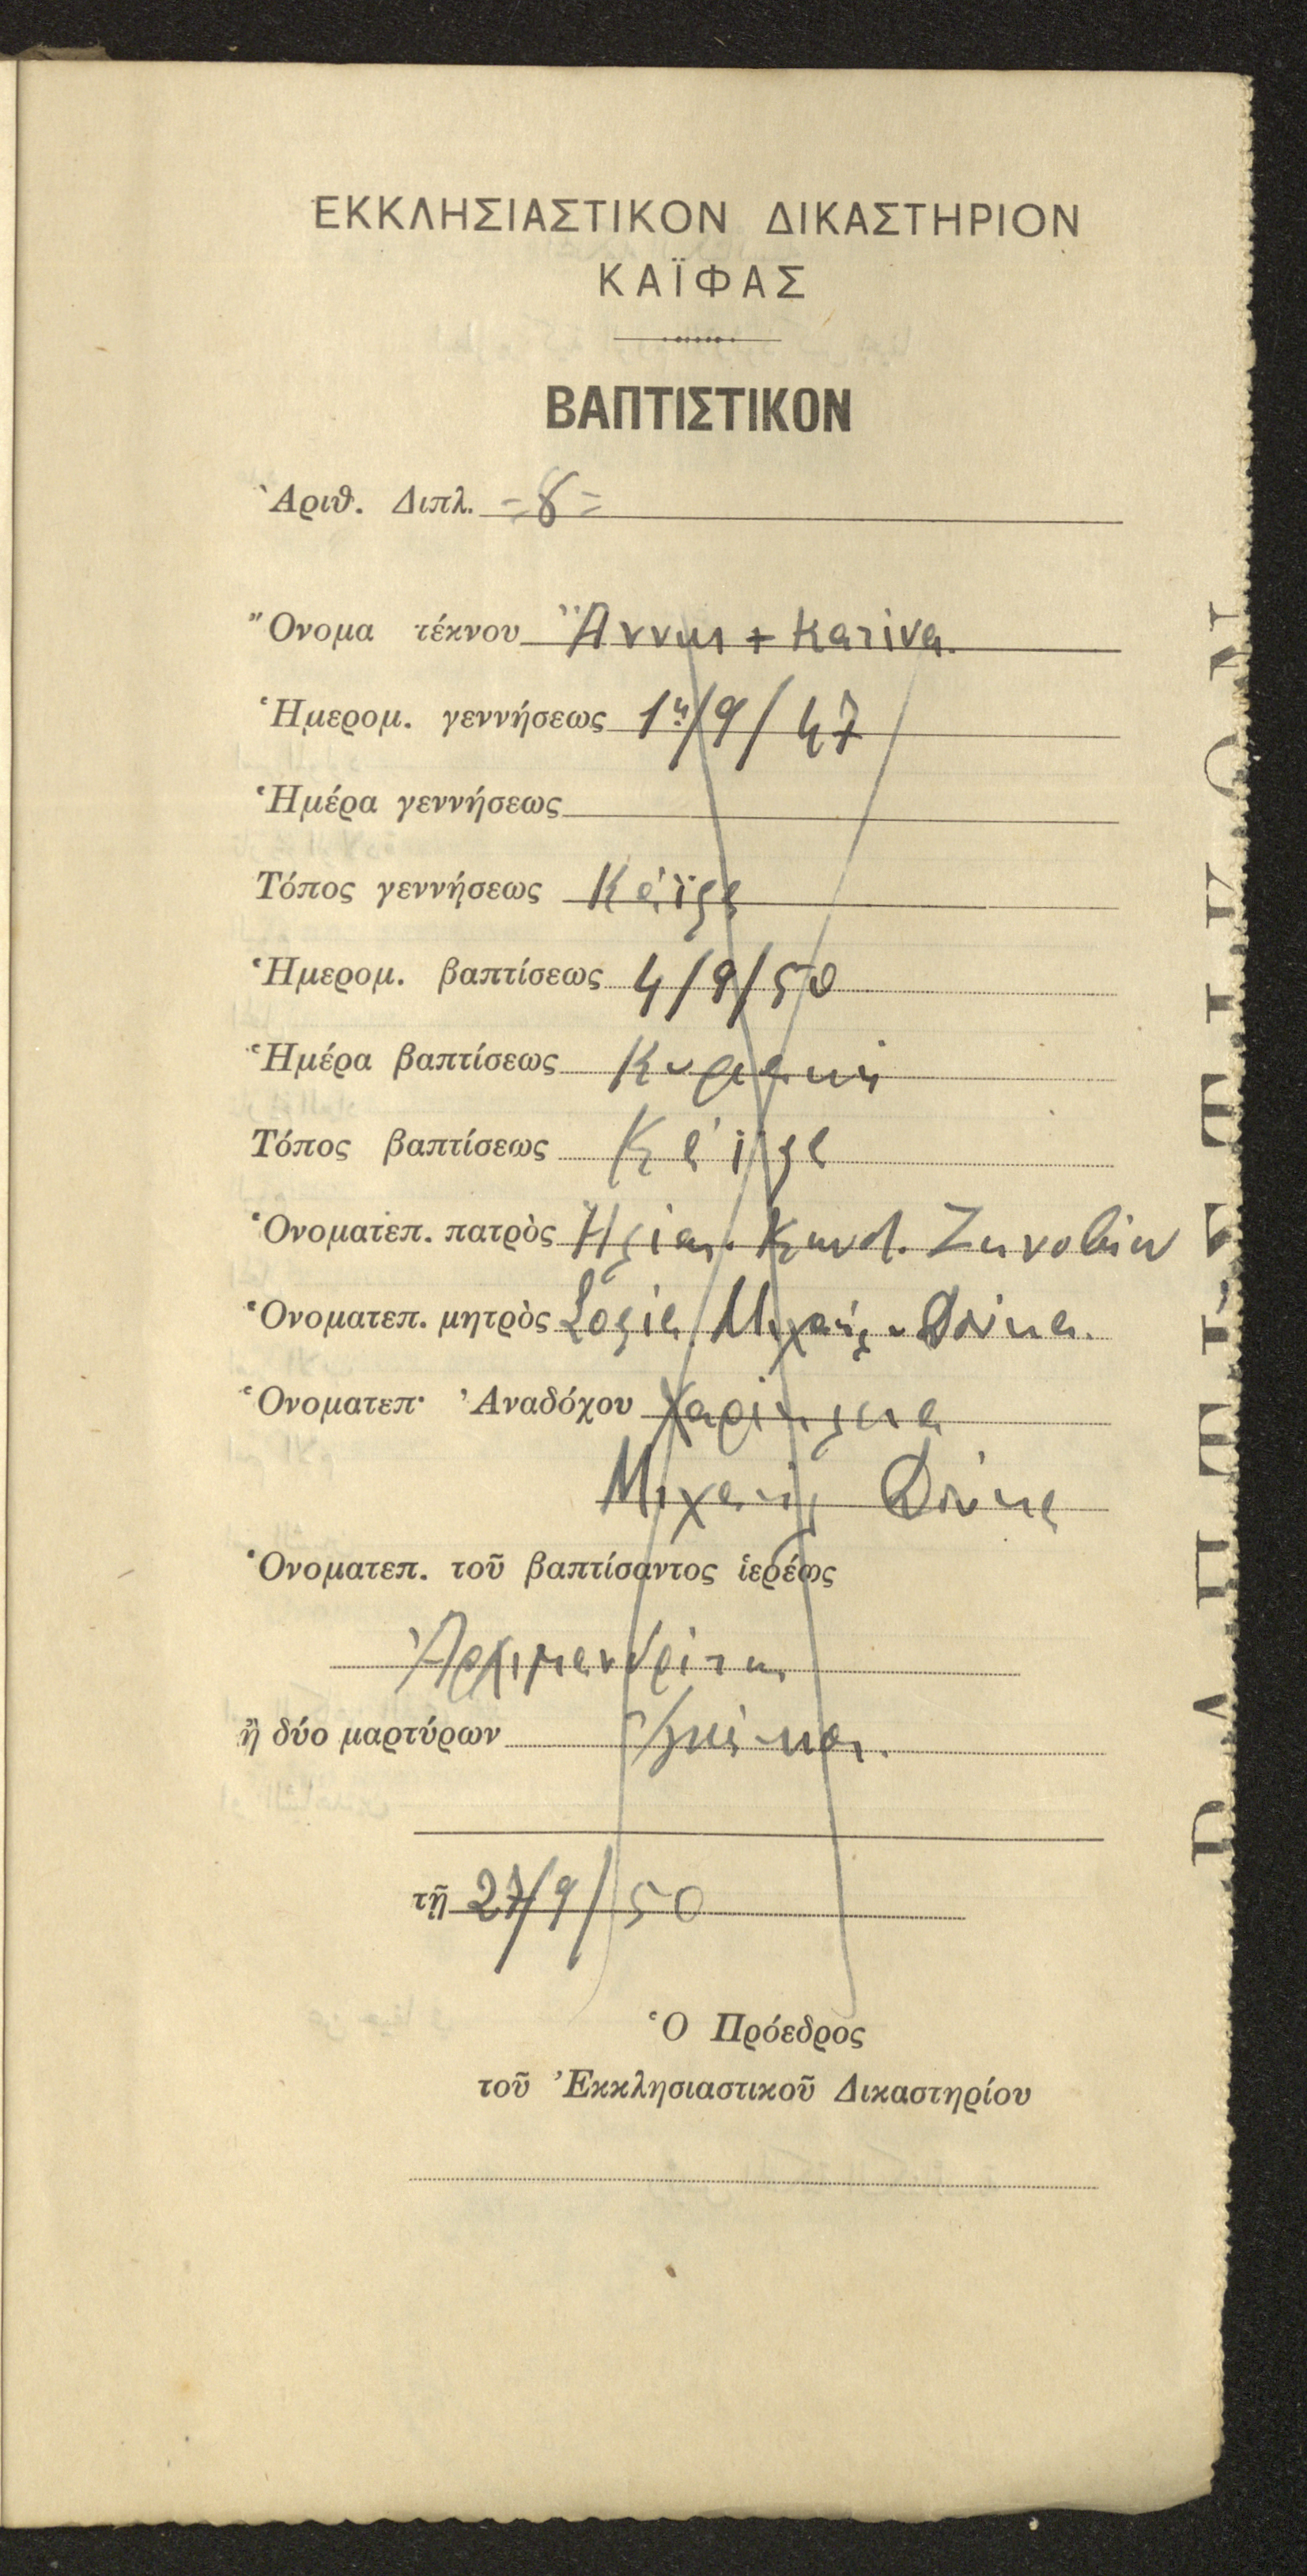 ΕΚΚΛΗΣΙΑΣΤΙΚΟΝ ΔΙΚΑΣΤΗΡΙΟΝ
ΚΑΪΦΑΣ
ΒΑΠΤΙΣΤΙΚΟΝ
Ἀριθ. Διπλ. =8=
Ὄνομα τέκνου Ἄννης + Κατίνα.
Ἡμερομ. γεννήσεως 1η/9/47
Ἡμέρα γεννήσεως
Τόπος γεννήσεως Κάϊφα
Ἡμερομ. βαπτίσεως 4/9/50
Ἡμέρα βαπτίσεως Κυριακή
Τόπος βαπτίσεως Κάϊφα
Ὀνοματεπ. πατρὸς Ἠλίας Κωνστ.
Ὀνοματεπ. μητρὸς Σοφία Μιχαὴλ
Ὀνοματεπ. Ἀναδόχου
Μιχαὴλ
Ὀνοματεπ. τοῦ βαπτίσαντος ἱερέως
Ἀρχιμανδρίτης
ἢ δύο μαρτύρων
τῇ 27/9/50
Ὁ Πρόεδρος
τοῦ Ἐκκλησιαστικοῦ Δικαστηρίου
ΒΑΠΤΙΣΤΙΚΟΝ